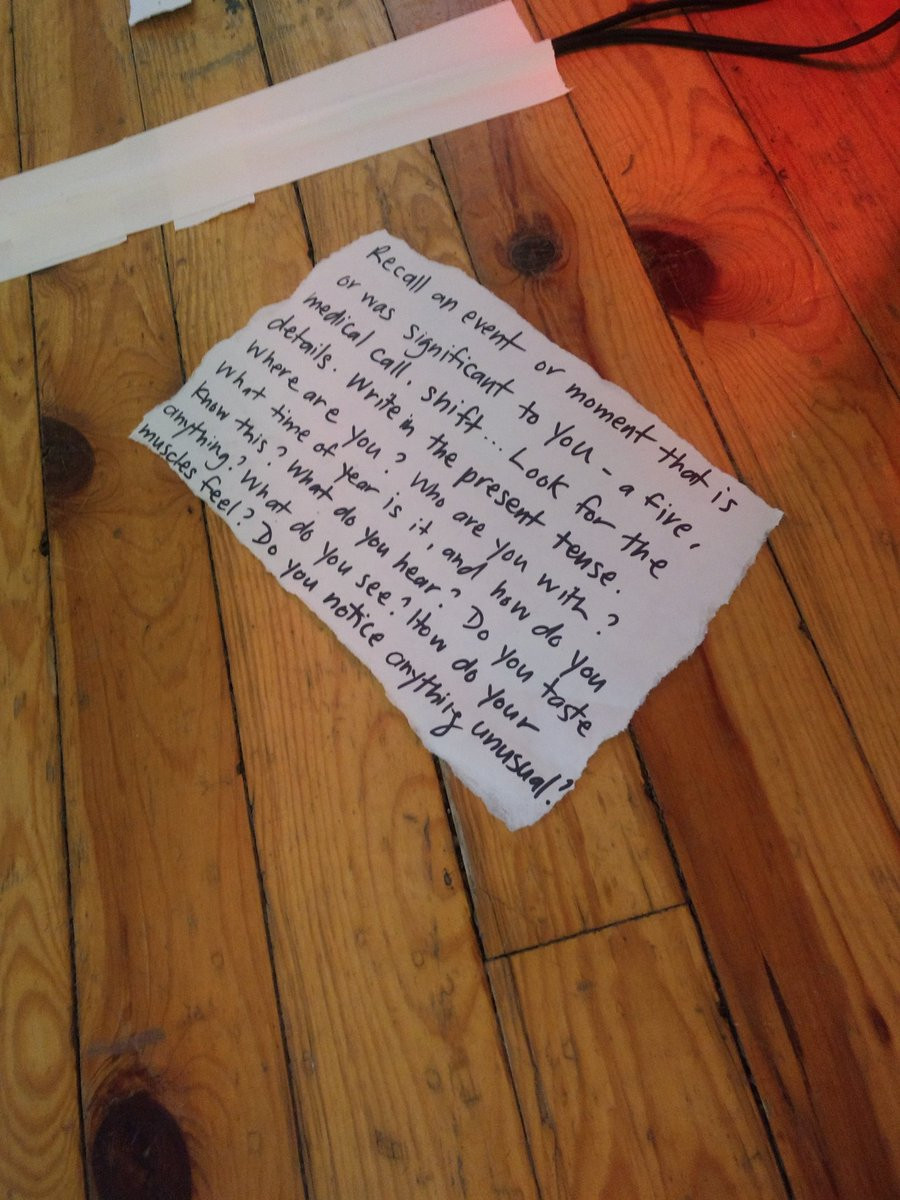 Recall an event or moment that is
or was significant to you - a fire,
medical call, shift... Look for the
details. Write in the present tense.
Where are you? Who are you with?
What time of year is it, and how do you
know this? What do you hear? Do you taste
anything? What do you see? How do your
muscles feel? Do you notice anything unusual?